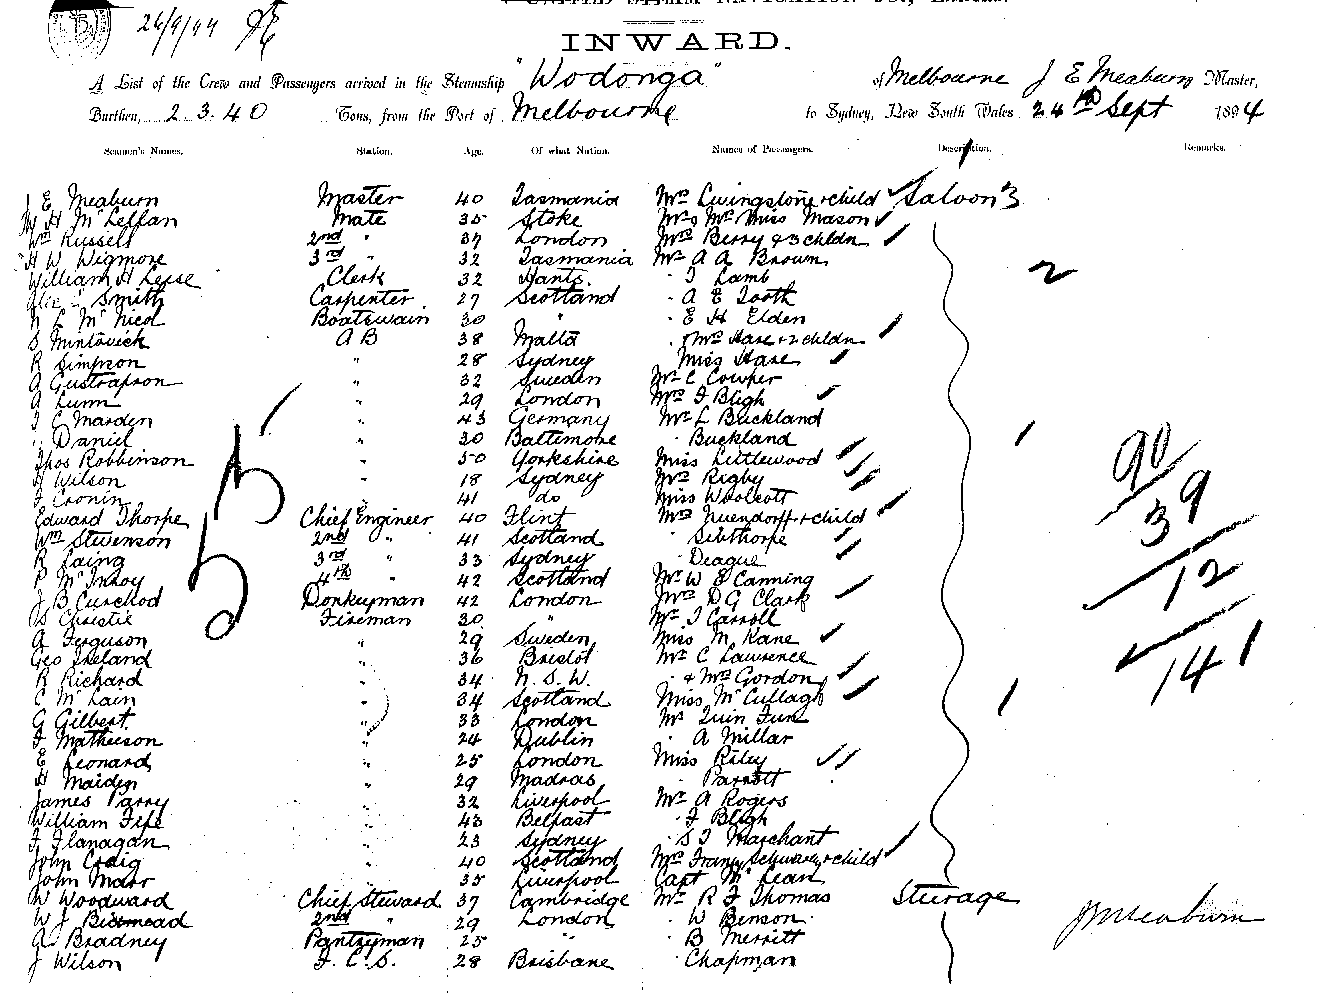 26/9/94
INWARD.
A List of the Crew and Passengers arrived in the Steamship "Wodonga" of Melbourne J E Meaburn Master,
Burthen, 2340 Tons, from the Port of Melbourne to Sydney, New South Wales 24th Sept 1894
Seamen's Names. Station. Age. Of what Nation. Names of Passengers. Description. Remarks.
J E Meaburn Master 40 Tasmania Mrs Livingstone + child Saloon 3
Mate 35 Stoke Mr & Mrs Miss Mason
Wm Russell 2nd " 37 London Mrs Berry & 3 chldn
H W Wigmore 3rd " 32 Tasmania Mr A A Brown
William H Leese Clerk 32 Hants. " Lamb 2
Smith Carpenter 27 Scotland " A E Tooth
Mc Nicol Boatswain 30 " " E H Elden
S Mintovick A B 38 Malta " Mrs Hare + 2 chldn
R Simpson " 28 Sydney Miss Hare
A Gustrafson " 32 Sweden Mr C Cowper
A Lunn " 29 London Mrs F Bligh
Marden " 43 Germany Mr L Buckland
Daniel " 30 Baltimore " Buckland
Thos Robbinson " 50 Yorkshire Miss Littlewood 90
Wilson " 18 Sydney Mrs Rigby
Cronin " 41 do Miss Woolcott 39
Edward Thorpe Chief Engineer 40 Flint Mrs Nuendorff + child
55
Wm Stevenson 2nd " 41 Scotland " Sibthorpe
R Laing 3rd " 33 Sydney " Deague
P McInroy 4th " 42 Scotland Mr W E Canning 12
J B Curchod Donkeyman 42 London Mrs D G Clark
Christie Fireman 30 " Mr J Carroll
A Ferguson " 29 Sweden Miss M Kane
Geo Ireland " 36 Bristol Mr C Lawrence 141
R Richard " 34 N. S. W. " & Mrs Gordon
C McLain " 34 Scotland Miss McCullagh
G Gilbert " 33 London Mr Quin Fun
Matheuson " 24 Dublin " A Millar
E Leonard " 25 London Miss Riley
H Maiden " 29 Madras " Parrott
James Parry " 32 Liverpool Mr A Rogers
William Fife " 43 Belfast " F Bligh
F Flanagan " 23 Sydney " S J Marchant
John Craig " 40 Scotland Mrs Schwarz + child
John Marr " 35 Liverpool Capt McLean
W Woodward Chief Steward 37 Cambridge Mr R F Thomas Steerage
W J Bismead 2nd " 29 London " W Benson
Bradney Pantryman 25 " " B Merritt
J Wilson F. C. S. 28 Brisbane " Chapman
J E Meaburn